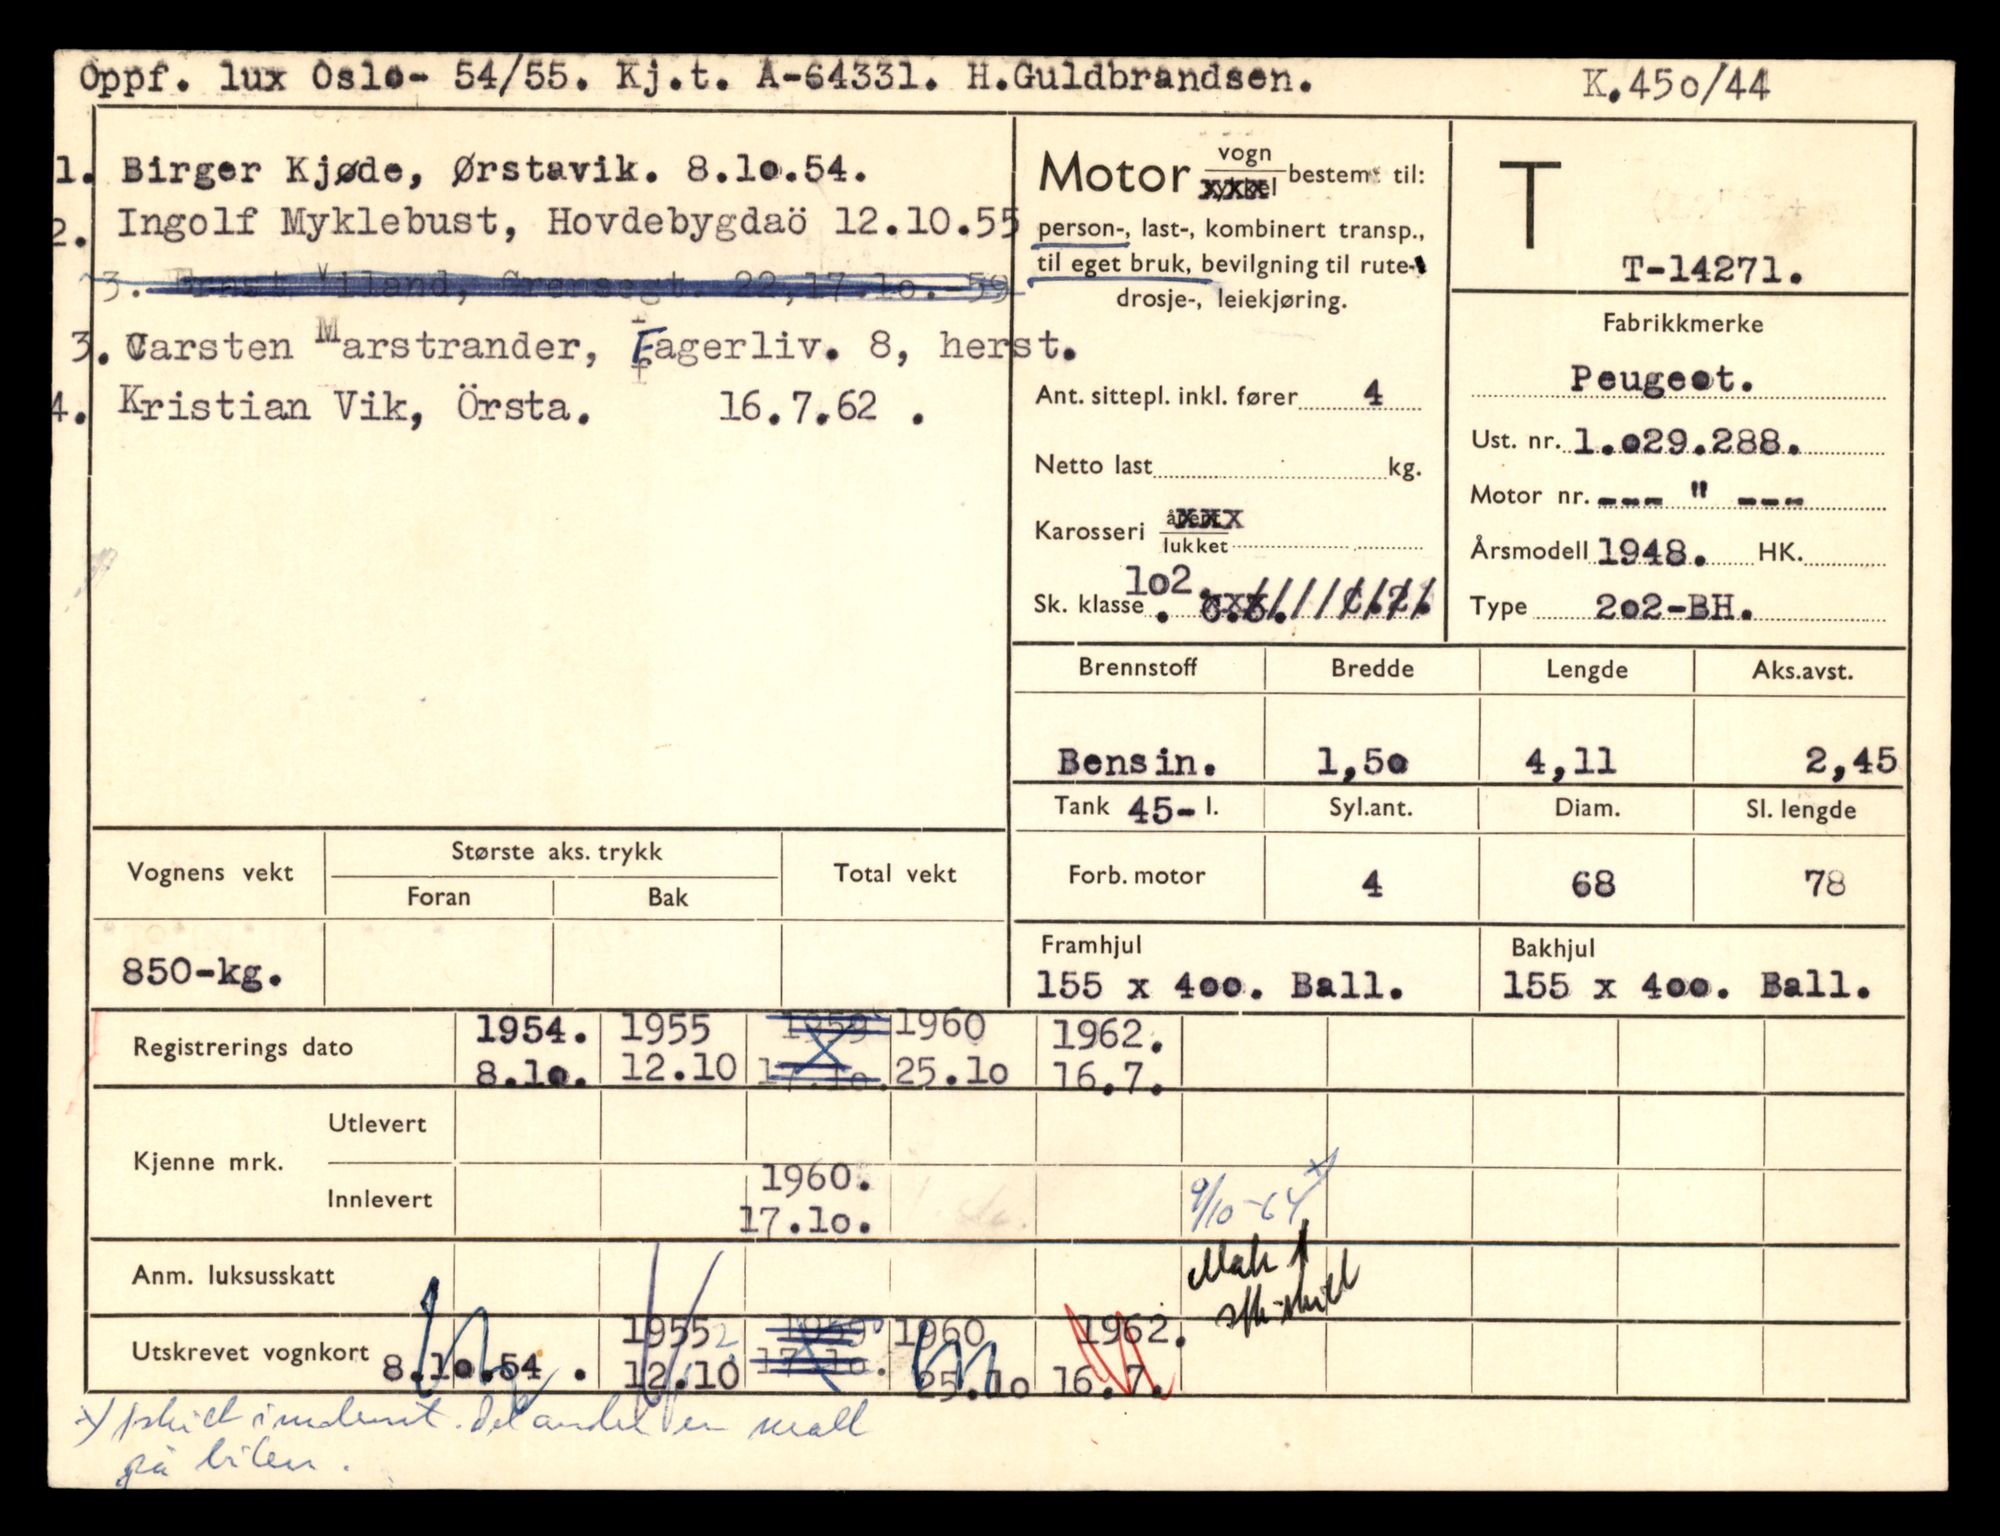 Oppf. lux Oslo- 54/55. Kj.t. A-64331. H.Guldbrandsen. K.45o/44
1. Birger Kjøde, Ørstavik. 8.1o.54.
2. Ingolf Myklebust, Hovdebygdaö 12.10.55
3. Ernst Viland, Grensegt. 22,17.1o.-59
3. Carsten Marstrander, Fagerliv. 8, herst.
4. Kristian Vik, Örsta. 16.7.62 .
Motor vogn
sykkel
bestemt til:
person-, last-, kombinert transp.,
til eget bruk, bevilgning til rute-
drosje-, leiekjøring.
Ant. sittepl. inkl. fører 4
Netto last kg.
Karosseri åpent
lukket
Sk. klasse 1o2.
T
T-14271.
Fabrikkmerke
Peugeot.
Ust. nr. 1.o29.288.
Motor nr. --- " ---
Årsmodell 1948. HK.
Type 2o2-BH.
Brennstoff Bredde Lengde Aks.avst.
Bensin. 1,5o 4,11 2,45
Tank 45- l. Syl.ant. Diam. Sl. lengde
Forb. motor 4 68 78
Framhjul Bakhjul
155 x 4oo. Ball. 155 x 4oo. Ball.
Vognens vekt Største aks. trykk Total vekt
Foran Bak
850-kg.
Registrerings dato 1954. 1955 1959 1960 1962.
8.1o. 12.10 17.1o. 25.1o 16.7.
Kjenne mrk. Utlevert
Innlevert 1960.
17.1o.
9/10-64 x)
Mak 1
Anm. luksusskatt
Utskrevet vognkort 8.1o.54 . 1955 1959 1960 1962.
12.10 17.1o. 25.1o 16.7.
x) 1 skilt innlevert. Det andre er malt
på bilen.